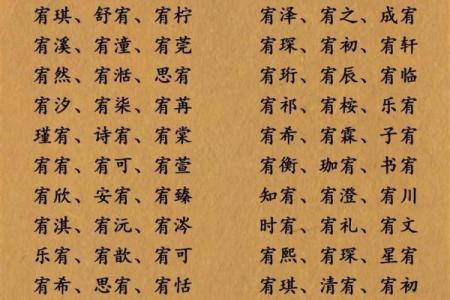 宥琪、舒宥、宥柠
宥溪、宥潼、宥莞
宥然、宥湉、思宥
宥汐、宥柒、宥苒
瑾宥、诗宥、宥棠
宥宥、宥可、宥萱
宥欣、安宥、宥臻
宥淇、宥沅、宥涔
乐宥、宥歆、宥可
宥希、思宥、宥恬
宥泽、宥之、成宥
宥琛、宥初、宥轩
宥珩、宥辰、宥临
宥祁、宥桉、乐宥
宥希、宥霖、子宥
宥衡、珈宥、书宥
知宥、宥澄、宥川
时宥、宥礼、宥文
宥熙、宥琛、星宥
宥琪、清宥、宥初